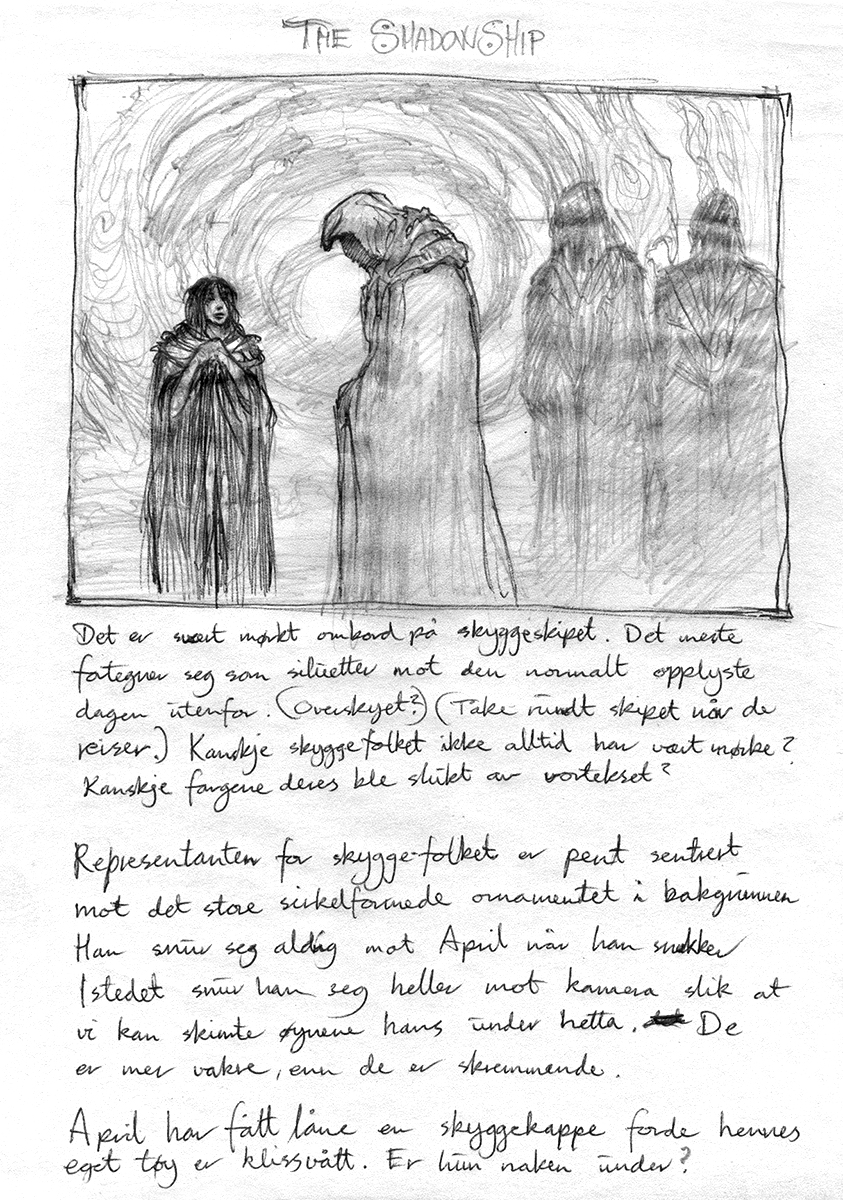 THE SHADOWSHIP
Det er svært mørkt ombord på skyggeskipet. Det meste
fortegner seg som silüetter mot den normalt opplyste
dagen ütenfor. (Overskyet?) (Tåke ründt skipet når de
reiser.) Kanskje skyggefolket ikke alltid har vært mørke?
Kanskje fargene deres ble slükt av vortekset?
Representanten for skygge-folket er pent sentrert
mot det store sirkelformede ornamentet i bakgrünnen
Han snür seg aldrig mot April når han snakker
Istedet snür han seg heller mot kamera slik at
vi kan skimte øynene hans ünder hetta. De
er mer vakre, enn de er skremmende.
April har fått låne en skyggekappe forde hennes
eget tøy er klissvått. Er hün naken ünder?